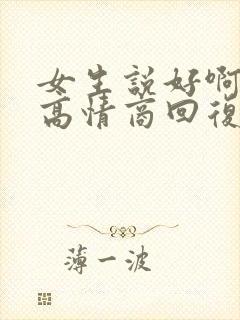 女生説好啊
高情商回復
薄一波